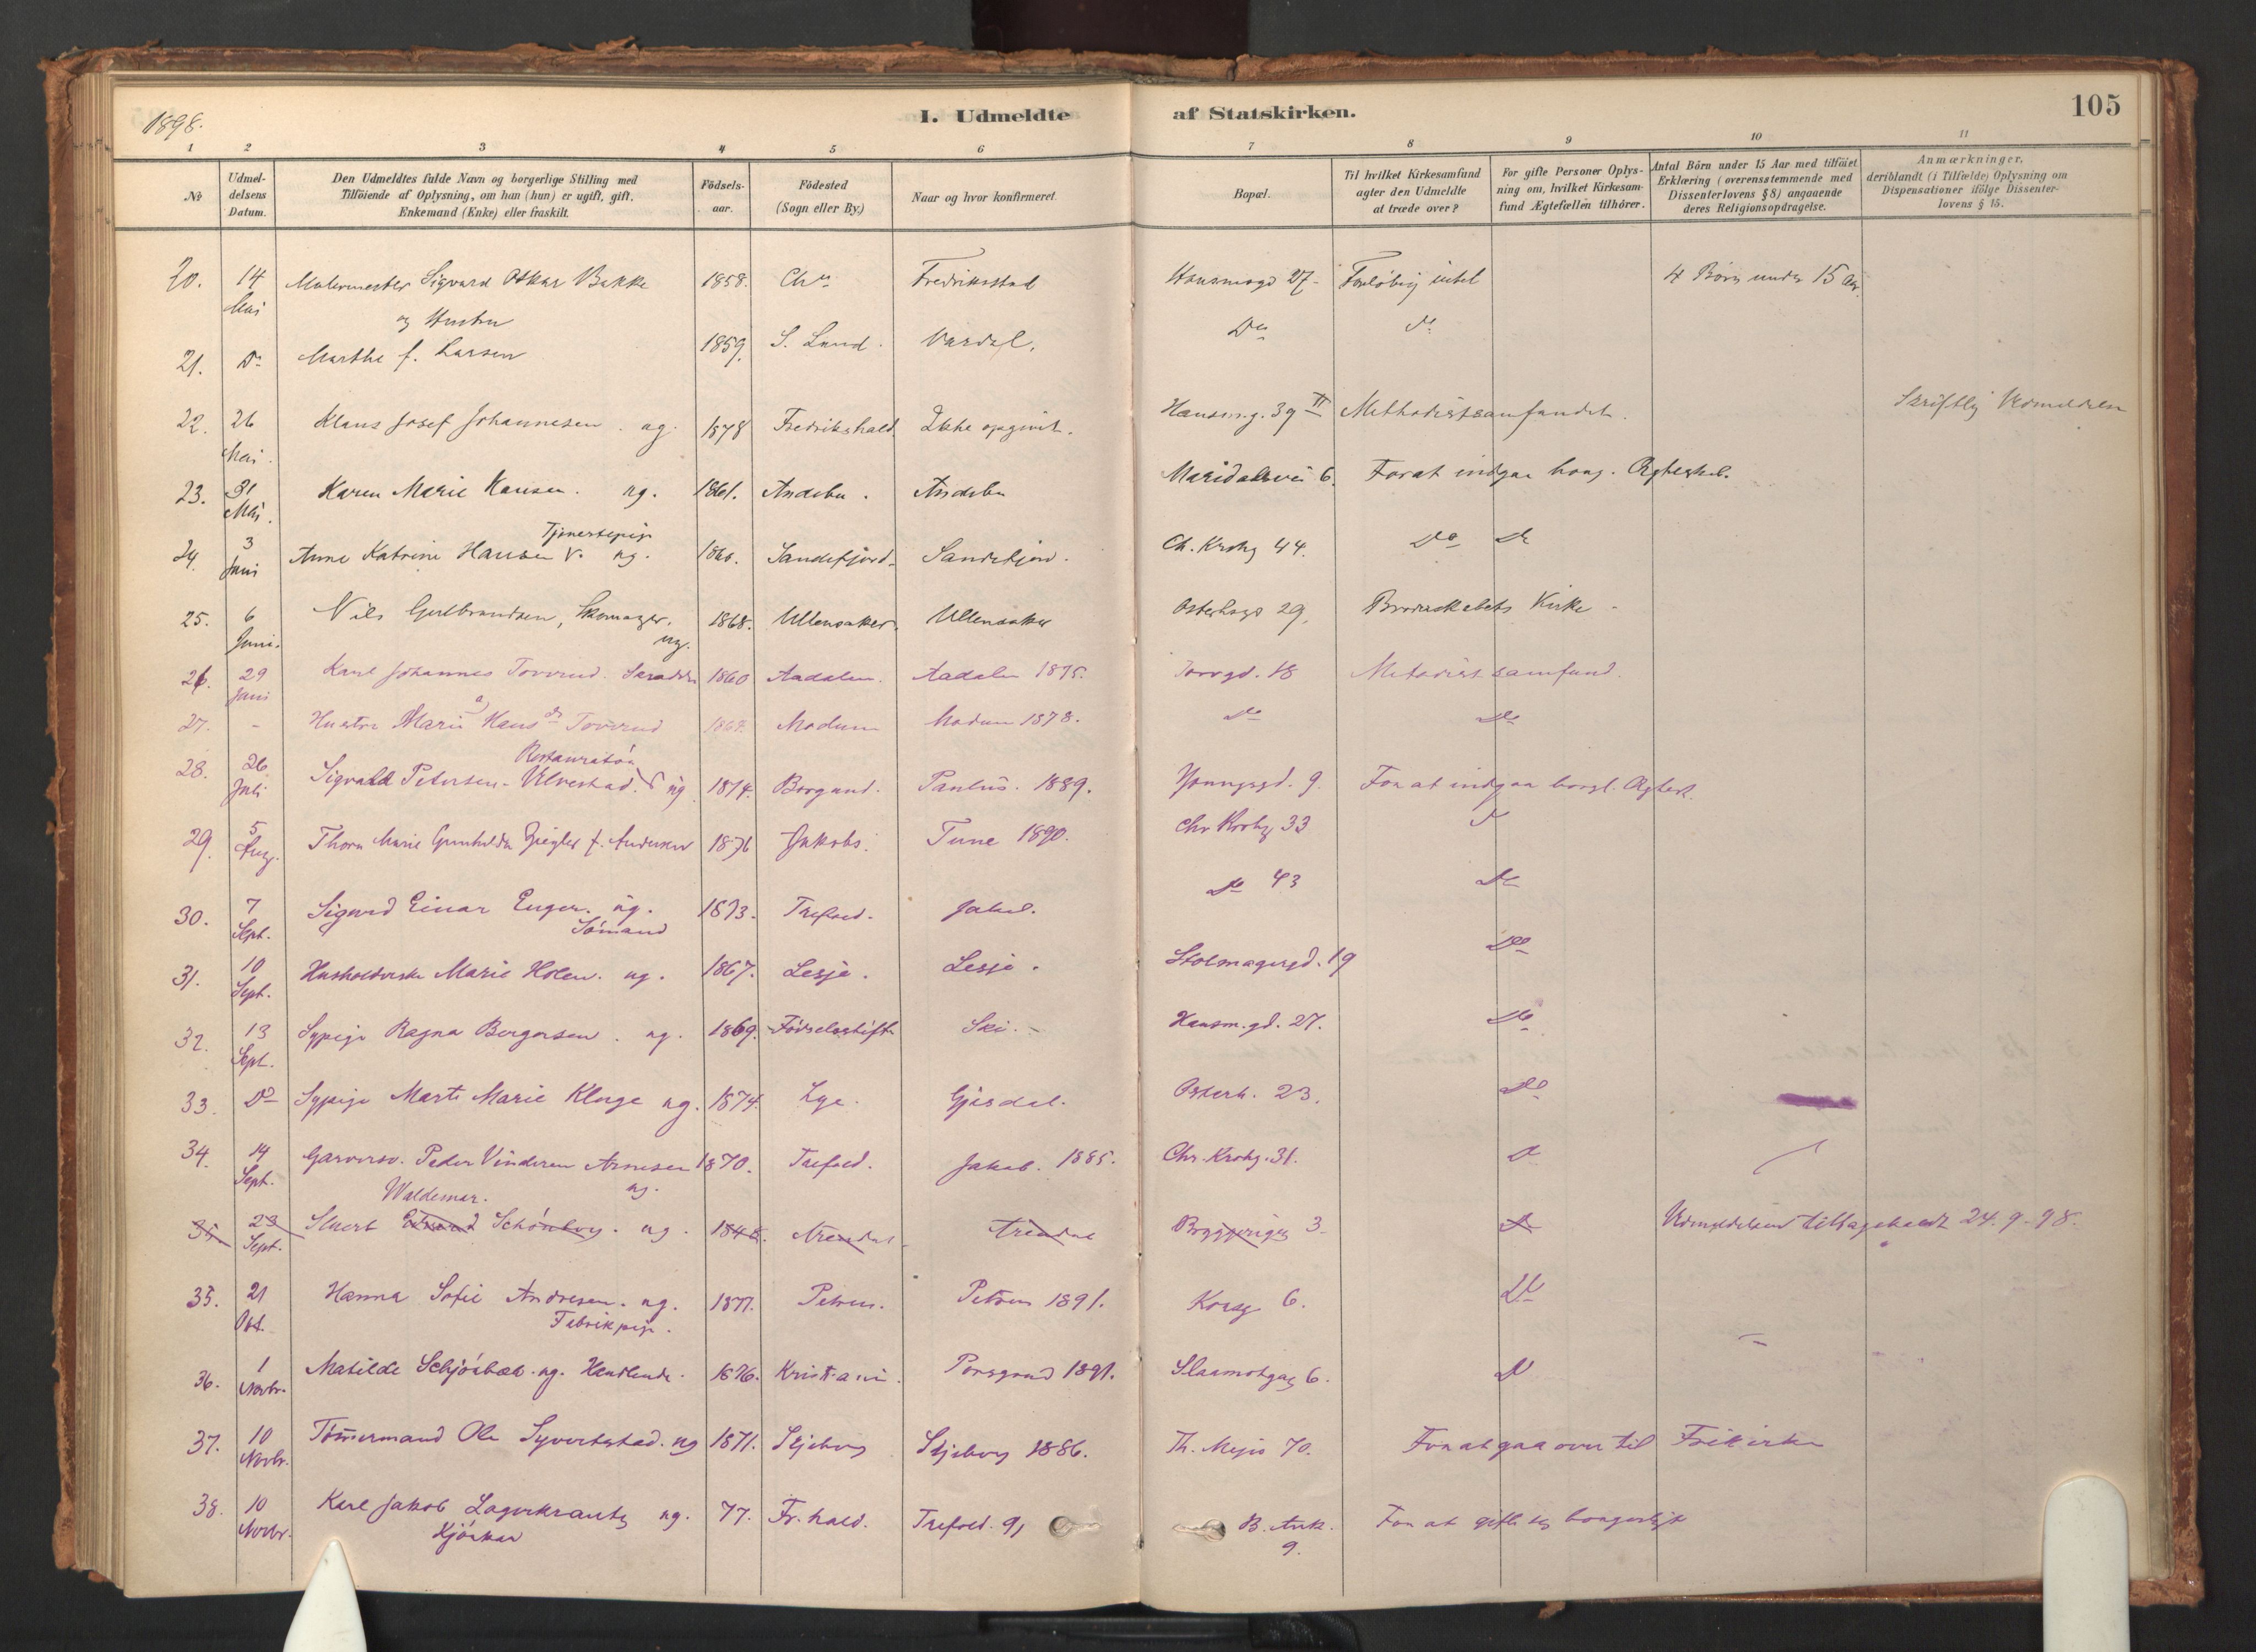 1898.
I. Udmeldte af Statskirken.
105
1 2 3 4 5 6 7 8 9 10 11
No
Udmeldelsens Datum.
Den Udmeldtes fulde Navn og borgerlige Stilling med Tilföiende af Oplysning, om han (hun) er ugift, gift, Enkemand (Enke) eller fraskilt.
Födselsaar.
Födested (Sogn eller By.)
Naar og hvor konfirmeret.
Bopæl.
Til hvilket Kirkesamfund agter den Udmeldte at træde over?
For gifte Personer Oplysning om, hvilket Kirkesamfund Ægtefællen tilhörer.
Antal Börn under 15 Aar med tilföiet Erklæring (overensstemmende med Dissenterlovens § 8) angaaende deres Religionsopdragelse.
Anmærkninger, deriblandt (i Tilfælde) Oplysning om Dispensationer ifölge Dissenterlovens § 15.
20. 14 Mai Malermester Sigvard Oskar Bakke 1858. Chra Fredriksstad Hausmsgd 27 - Foreløbig intet 4 Børn under 15 Aar.
og Hustru
21. Do Marthe f. Larsen 1859. S. Land. Vardal. Do do
22. 26 Mai. Klaus Josef Johannesen. ug. 1878 Fredrikshald. Ikke opgivet. Hausm.g. 39 III Methodistsamfundet. Skriftlig Udmeldelse
23. 31 Mai. Karen Marie Hansen. ug. 1861. Andebu. Andebu Maridalsvei 6. For at indgaa borg. Ægteskab.
24. 3 Juni Anne Katrine Hansen ug. Tjenestepige Sandefjord. Sandefjord. Ch. Krohg 44. Do Do
25. 6 Juni. Nils Gulbrandsen, Skomager. ug. 1868. Ullensaker. Ullensaker Osterhsgd 29. Broderskabets Kirke -
26. 29 Juni Karl Johannes Toverud. 1860 Aadalen. Aadalen 1875. Torvgd. 18 Metodistsamfund.
27. - Hustru Marie Hansdr Toverud Modum Modum 1878. Do Do
28. 26 Juli Sigvald Petersen-Ulvestad. Restauratør ug 1874. Borgund. Paulus. 1889. Youngsgd. 9. For at indgaa borgl. Ægtesk.
29. 5 Aug. Thora Marie Gunhilda Ziegler f. Andersen 1876 Jakobs. Tune 1890. Chr Krohg 33 Do
30. 7 Sept. Sigurd Einar Enger. ug. Sømand 1873. Trefold. Jakob. Do 43 Do
31. 10 Sept. Husholderske Marie Holen. ug. 1867. Lesje. Lesje. Stolmagergd. 19 Do
32. 13 Sept. Sypige Ragna Borgersen. ug. 1869. Fødselsstift. Ski. - Hausm.gd. 27. Do
33. Do Sypige Marte Marie Kluge ug. 1874. Lye. Gjesdal. Osterh. 23. Do
34. 14 Sept. Garversv. Peder Vinderen Arnesen ug. 1870. Trefold. Jakob. 1885. Chr. Krohg. 31. Do
Waldemar.
35. 23 Sept. Edvard Schönberg. ug. 1848. Arendal Arendal Bryggerigg 3. Do Udmeldelsen tilbagekaldt 24.9-98.
35. 21 Okt. Hanna Sofie Andresen. ug. Fabrikpige. 1877. Petrus. Petrus 1891. Korsg 6. Do
36. 1 Novbr. Matilde Schjørbæk. ug. Handlende. 1876. Kristiania. Porsgrund 1891. Slaamotgag 6. Do
37. 10 Novbr. Tømmermand Ole Syvertstad. ug 1871. Skjeberg Skjeberg 1886. Th. Mejes 70. For at gaa over til Frikirke
38. 10 Novbr. Karl Jakob Lagerkrantz ug. Kjørkar 77. Fr.hald. Trefold. 91 B. Ank. 9. For at gifte seg borgerligt